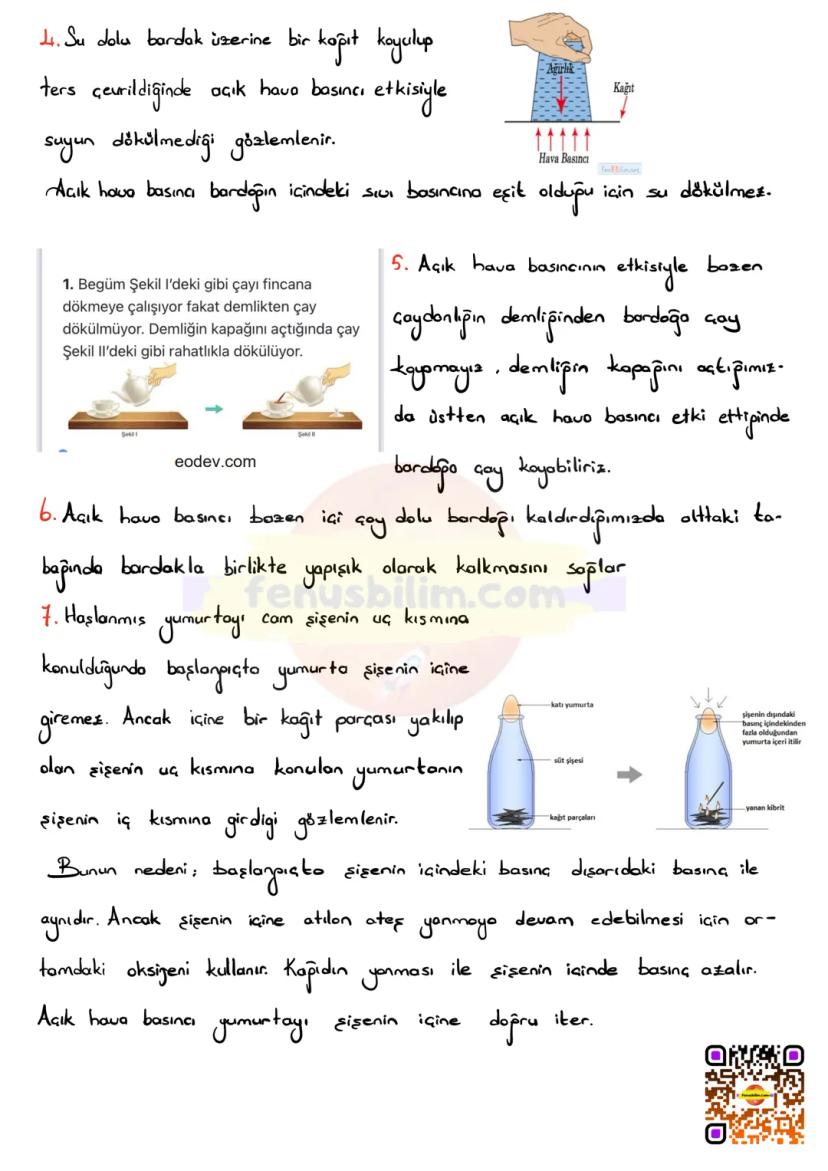 4. Su dolu bardak üzerine bir kağıt koyulup
ters çevrildiğinde açık hava basıncı etkisiyle
suyun dökülmediği gözlemlenir.
Açık hava basıncı bardağın içindeki sıvı basıncına eşit olduğu için su dökülmez.
Ağırlık
Kağıt
Hava Basıncı
1. Begüm Şekil I'deki gibi çayı fincana
dökmeye çalışıyor fakat demlikten çay
dökülmüyor. Demliğin kapağını açtığında çay
Şekil II'deki gibi rahatlıkla dökülüyor.
Şekil I
Şekil II
eodev.com
5. Açık hava basıncının etkisiyle bazen
çaydanlığın demliğinden bardağa çay
koyamayız, demliğin kapağını açtığımız-
da üstten açık hava basıncı etki ettiğinde
bardağa çay koyabiliriz.
6. Açık hava basıncı bazen içi çay dolu bardağı kaldırdığımızda alttaki ta-
bağında bardakla birlikte yapışık olarak kalkmasını sağlar
fenusbilim.com
7. Haşlanmış yumurtayı cam şişenin uç kısmına
konulduğunda başlangıçta yumurta şişenin içine
giremez. Ancak içine bir kağıt parçası yakılıp
olan şişenin uç kısmına konulan yumurtanın
şişenin iç kısmına girdigi gözlemlenir.
katı yumurta
süt şişesi
kağıt parçaları
şişenin dışındaki
basınç içindekinden
fazla olduğundan
yumurta içeri itilir
yanan kibrit
Bunun nedeni; başlangıçta şişenin içindeki basınç dışarıdaki basınç ile
aynıdır. Ancak şişenin içine atılan ateş yanmaya devam edebilmesi için or-
tamdaki oksijeni kullanır. Kağıdın yanması ile şişenin içinde basınç azalır.
Açık hava basıncı yumurtayı şişenin içine doğru iter.
Fenusbilim.com